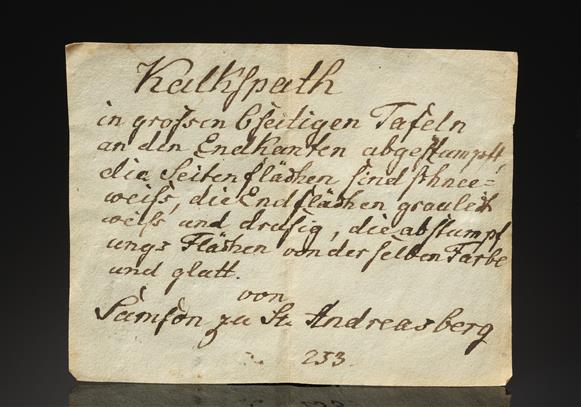 Kalkspath
in grossen 6seitigen Tafeln
an den Endkanten abgestumpft,
die Seitenflächen sind schnee=
weiss, die Endflächen graulich
weiss und drusig, die abstumpf
ungs Flächen von derselben Farbe
und glatt.
von
Samson zu St. Andreasberg
233.